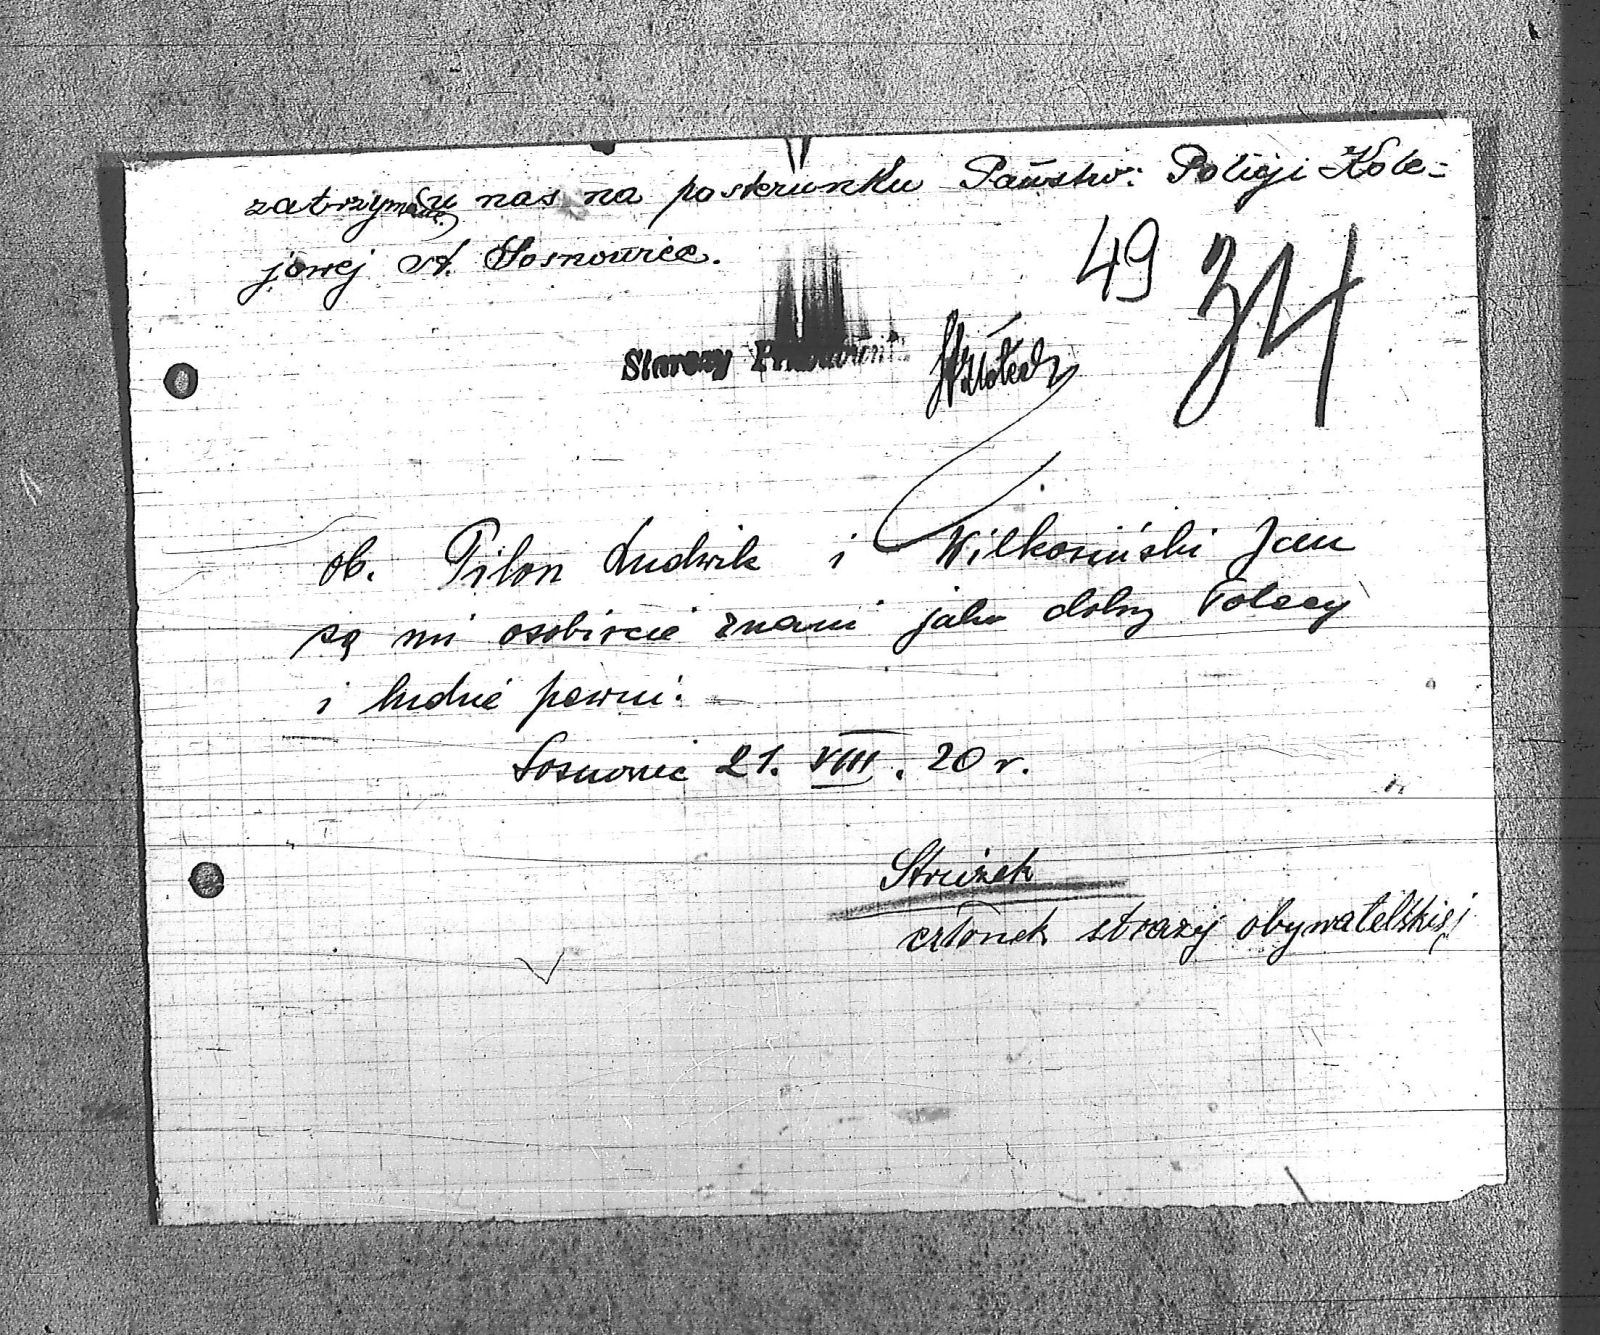 zatrzymane u nas na posterunku Państw: Policji Kole=
jowej st. Sosnowice.
49 34
Starszy
ob. Pilon Ludwik i Wilkosiński Jan
są mi osobiscie znani jako dobzy Polacy
i ludzie pewni.
Sosnowic 21. VIII. 20 r.
Struzek
członek strazy obywatelskiej